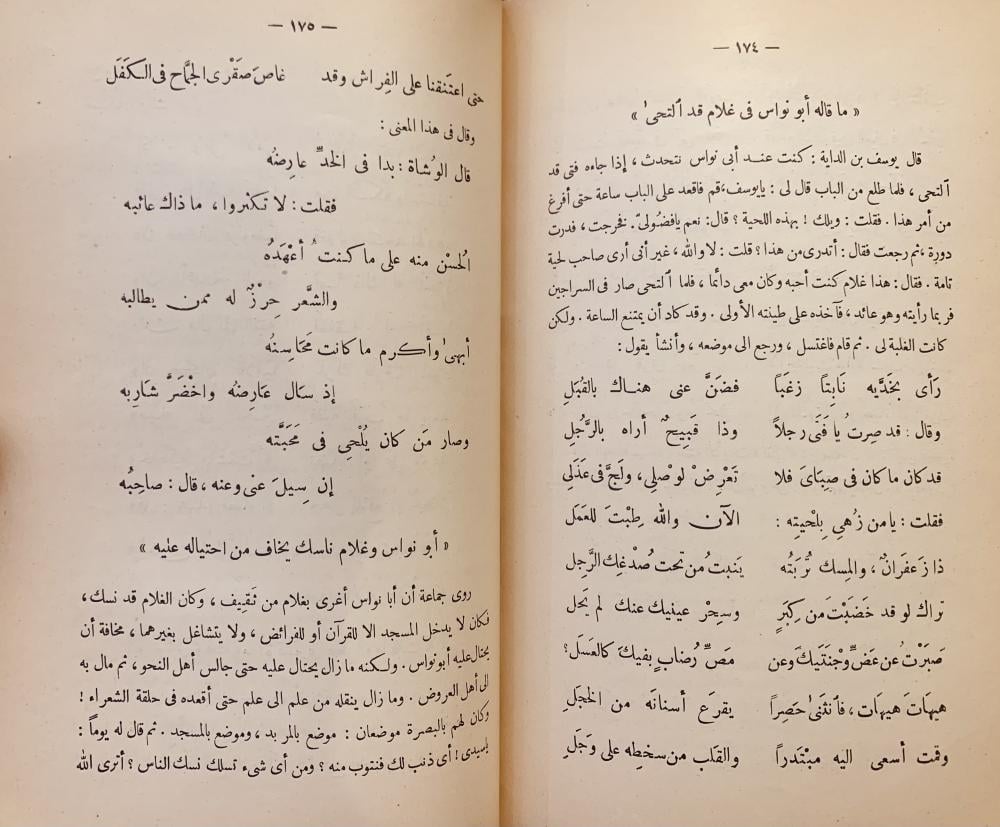 — ١٧٤ —
« ما قاله أبو نواس فى غلام قد ٱلتحىٰ »
قال يوسف بن الداية : كنت عنـد أبى نواس نتحدث ، إذا جاءه فتى قد
ٱلتحى ، فلما طلع من الباب قال لى : يايوسف،قم فاقعد على الباب ساعة حتى أفرغ
من أمر هذا . فقلت : ويلك ! بهذه اللحية ؟ قال: نعم يافضُولىّ. فخرجت ، فدرت
دورة ،ثم رجعت فقال : أتدرى من هذا؟ قلت : لا والله، غير أنى أرى صاحب لحية
تامة . فقال : هذا غلام كنت أحبه وكان معى دائما ، فلما ٱلتحى صار فى السراجين
فربما رأيته وهو عائد ، فآخذه على طينته الأولى . وقد كاد أن يمتنع الساعة . ولكن
كانت الغلبة لى . ثم قام فاغتسل ، ورجع الى موضعه ، وأنشأ يقول :
رَأى بخَدَّيه نَابِتاً زغَباً فضَنَّ عنى هناك بالقُبَلِ
وقال : قد صِرتُ يا فَتَى رجلاً وذا قَبِيحٌ أراه بالرَّجُلِ
قد كان ما كان فى صِبَاىَ فلا تَعْرِضْ لوصْلِى ، ولَجَّ فى عَذَلِى
فقلت : يا من زُهِى بِلحْيتِه : الآن والله طِبْتَ للعَمَل
ذا زَعفَرانٌ ، والمِسك تُرْبَتُه ينَبتُ من تحت صُدْغِك الرَّجِل
تراك لو قد خَضَبْتَ من كِبَرٍ وسِحْر عينيك عنك لم يَحَل
صَبَرْتُ عن عَضِّ وَجْنَتَيكَ وعن مَصِّ رُضابٍ بفيكَ كالعَسَل؟
هيهَات هيهَات ، فٱنثَنىٰ حَصِراً يقرَع أسنانَه من الخجَلِ
وقمت أسعى اليه مبْتَدراً والقلب من سخطِه على وَجَلِ
— ١٧٥ —
حتى اعتَنقنا على الفِراش وقد غاصَ صَقْرى الجمَّاح فى الكَفَل
وقال فى هذا المعنى :
قال الوُشاة : بدا فى الخدِّ عارِضُه
فقلت : لا تكثروا ، ما ذاك عائبه
الحُسْن منه على ما كنت أعْهَدُه
والشَّعر حِرْزٌ له ممن يطالبه
أبهىٰ وأكرم ما كانت مَحَاسِنُه
إذ سال عارِضُه واخْضَرَّ شارِبه
وصار مَن كان يُلْحِى فى مَحَبَّته
إن سِيلَ عنى وعنه ، قال : صاحِبُه
« أبو نواس وغلام ناسك يخاف من احتياله عليه »
روى جماعة أن أبا نواس أغرى بغلام من ثَقِيف ، وكان الغلام قد نسك ،
فكان لا يدخل المسجد الا للقرآن أو للفرائض ، ولا يتشاغل بغيرهما ، مخافة أن
يحتال عليه أبو نواس . ولكنه ما زال يحتال عليه حتى جالس أهل النحو ، ثم مال به
الى أهل العروض . وما زال ينقله من علم الى علم حتى أقعده فى حلقة الشعراء !
وكان لهم بالبصرة موضعان : موضع بالمربد ، وموضع بالمسجد . ثم قال له يوماً :
ياسيدى ! أى ذنب لك فنتوب منه ؟ ومن أى شىء تسلك نسك الناس ؟ أترى الله